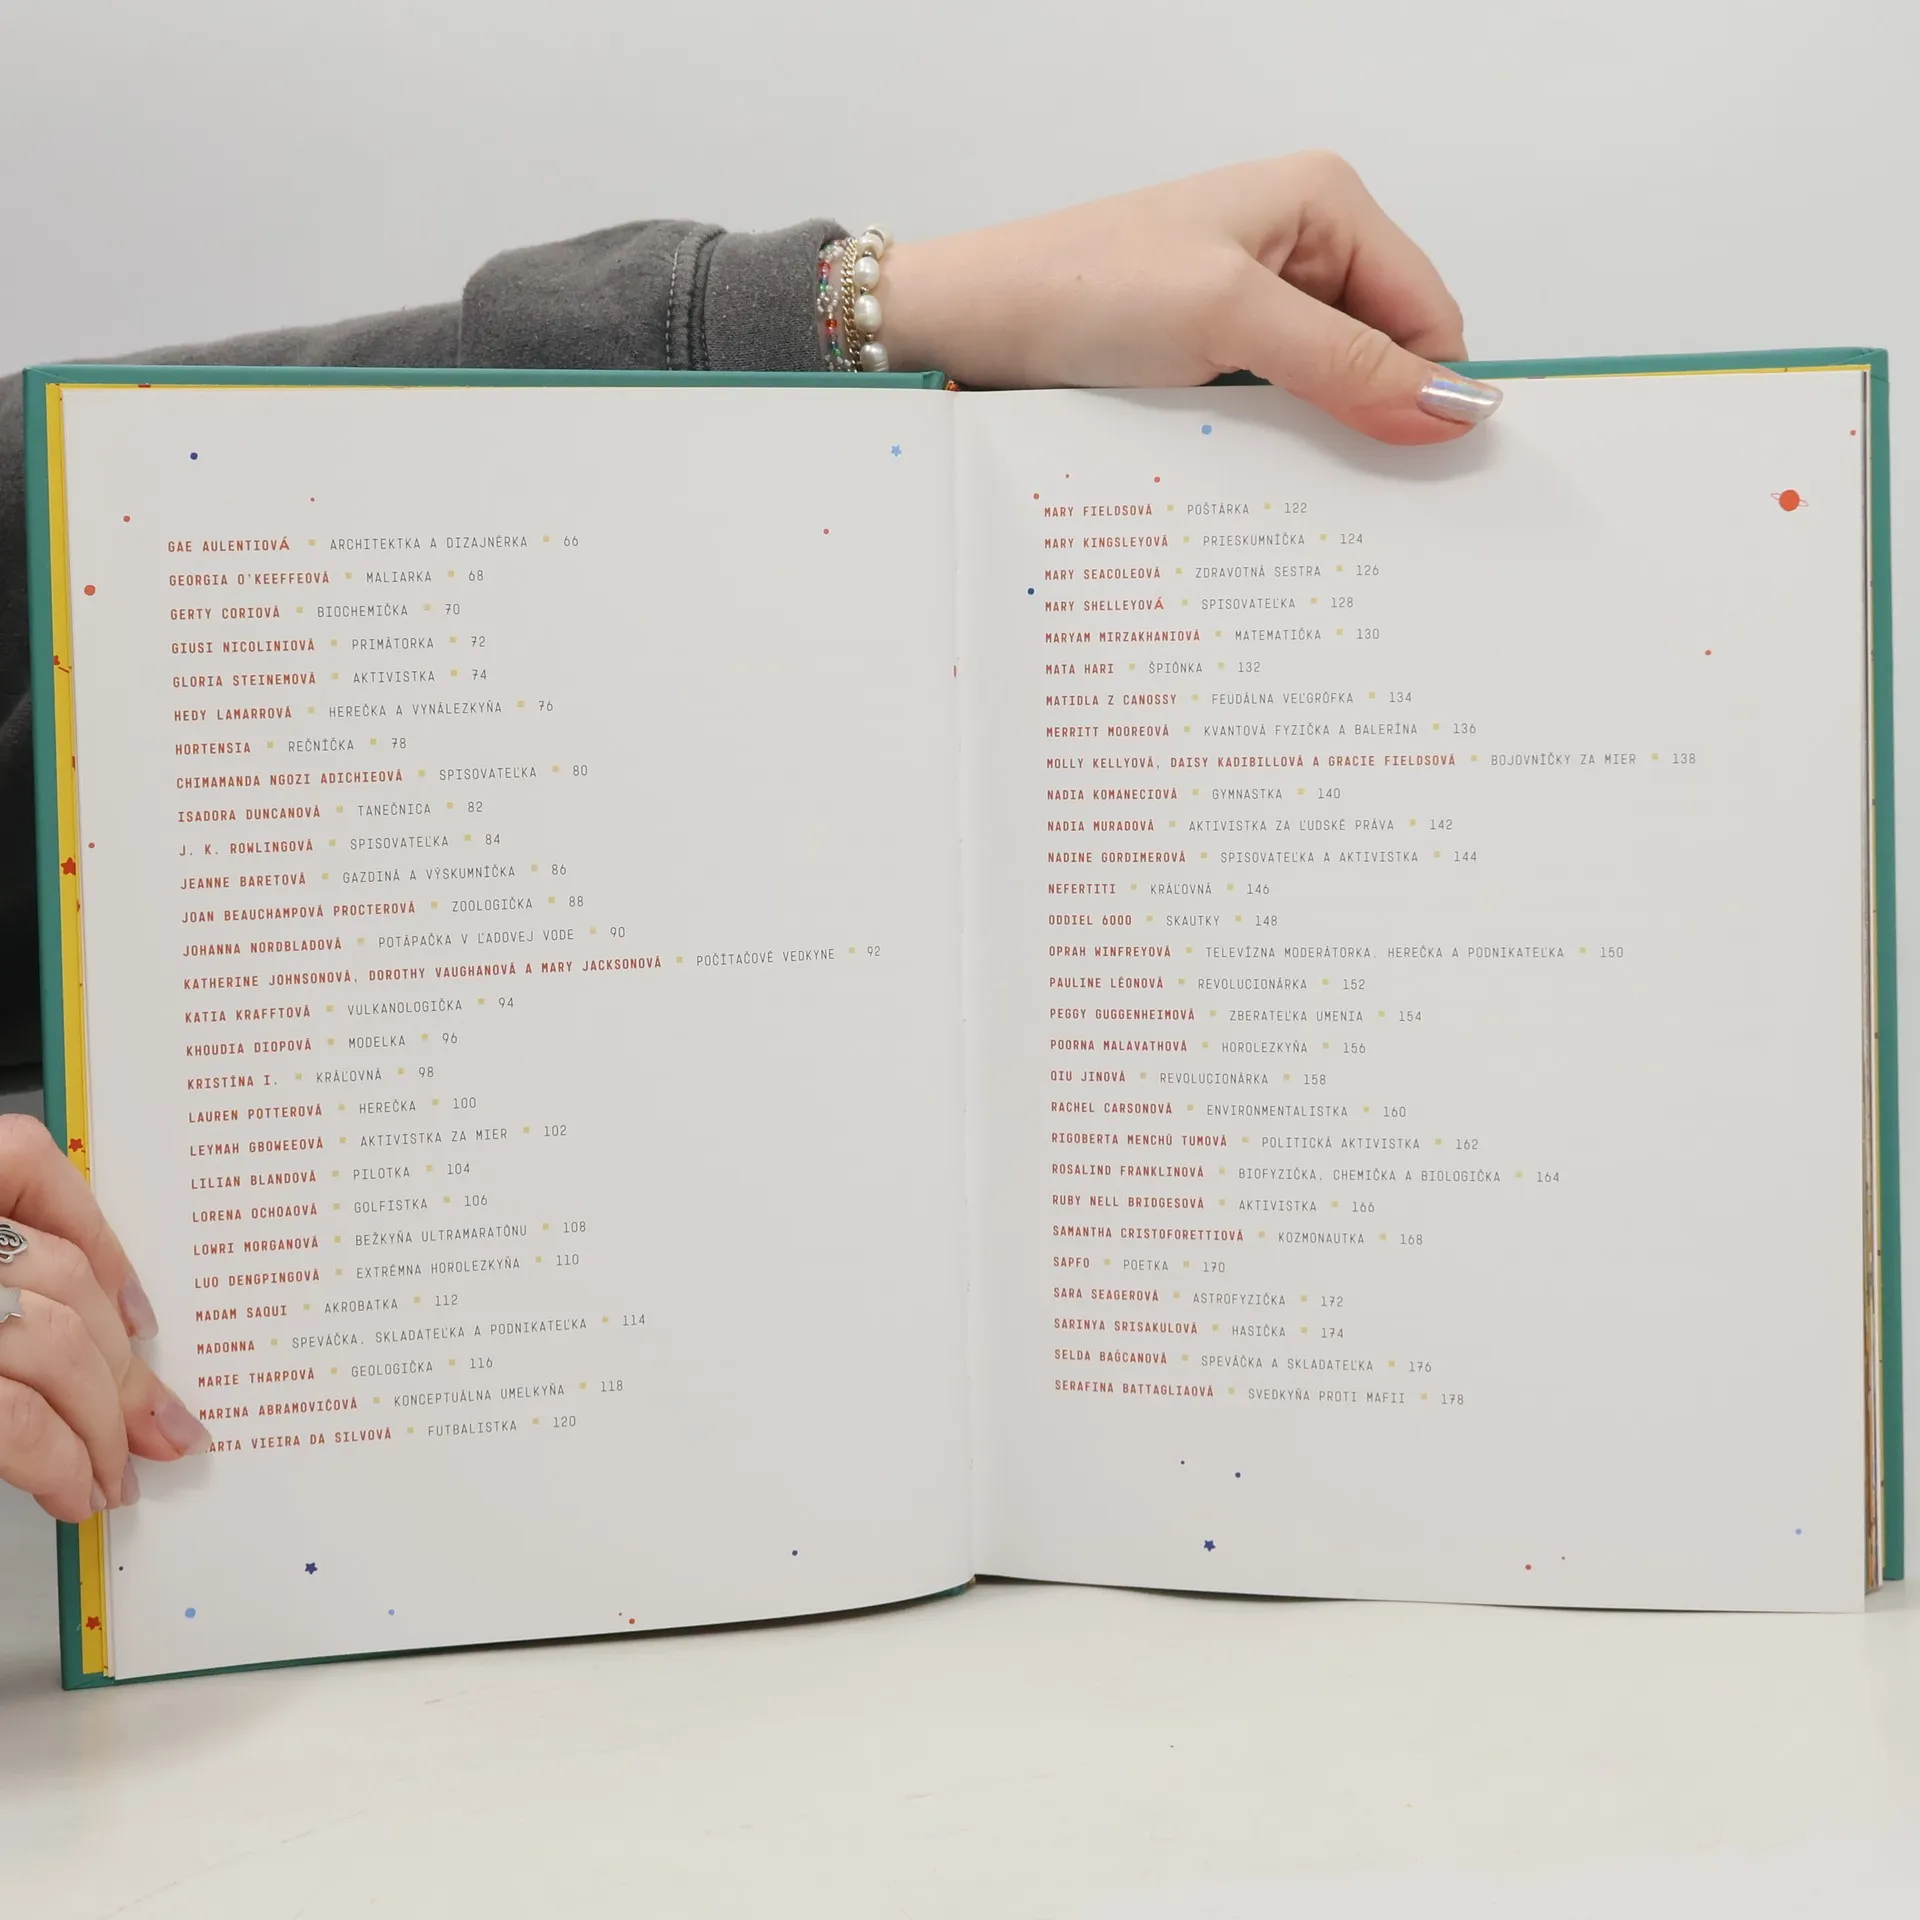 GAE AULENTIOVÁ ▪ ARCHITEKTKA A DIZAJNÉRKA ▪ 66
GEORGIA O'KEEFFEOVÁ ▪ MALIARKA ▪ 68
GERTY CORIOVÁ ▪ BIOCHEMIČKA ▪ 70
GIUSI NICOLINIOVÁ ▪ PRIMÁTORKA ▪ 72
GLORIA STEINEMOVÁ ▪ AKTIVISTKA ▪ 74
HEDY LAMARROVÁ ▪ HEREČKA A VYNÁLEZKYŇA ▪ 76
HORTENSIA ▪ REČNÍČKA ▪ 78
CHIMAMANDA NGOZI ADICHIEOVÁ ▪ SPISOVATEĽKA ▪ 80
ISADORA DUNCANOVÁ ▪ TANEČNICA ▪ 82
J. K. ROWLINGOVÁ ▪ SPISOVATEĽKA ▪ 84
JEANNE BARETOVÁ ▪ GAZDINÁ A VÝSKUMNÍČKA ▪ 86
JOAN BEAUCHAMPOVÁ PROCTEROVÁ ▪ ZOOLOGIČKA ▪ 88
JOHANNA NORDBLADOVÁ ▪ POTÁPAČKA V ĽADOVEJ VODE ▪ 90
KATHERINE JOHNSONOVÁ, DOROTHY VAUGHANOVÁ A MARY JACKSONOVÁ ▪ POČÍTAČOVÉ VEDKYNE ▪ 92
KATIA KRAFFTOVÁ ▪ VULKANOLOGIČKA ▪ 94
KHOUDIA DIOPOVÁ ▪ MODELKA ▪ 96
KRISTÍNA I. ▪ KRÁĽOVNÁ ▪ 98
LAUREN POTTEROVÁ ▪ HEREČKA ▪ 100
LEYMAH GBOWEEOVÁ ▪ AKTIVISTKA ZA MIER ▪ 102
LILIAN BLANDOVÁ ▪ PILOTKA ▪ 104
LORENA OCHOAOVÁ ▪ GOLFISTKA ▪ 106
LOWRI MORGANOVÁ ▪ BEŽKYŇA ULTRAMARATÓNU ▪ 108
LUO DENGPINGOVÁ ▪ EXTRÉMNA HOROLEZKYŇA ▪ 110
MADAM SAQUI ▪ AKROBATKA ▪ 112
MADONNA ▪ SPEVÁČKA, SKLADATEĽKA A PODNIKATEĽKA ▪ 114
MARIE THARPOVÁ ▪ GEOLOGIČKA ▪ 116
MARINA ABRAMOVIČOVÁ ▪ KONCEPTUÁLNA UMELKYŇA ▪ 118
ARTA VIEIRA DA SILVOVÁ ▪ FUTBALISTKA ▪ 120
MARY FIELDSOVÁ ▪ POŠTÁRKA ▪ 122
MARY KINGSLEYOVÁ ▪ PRIESKUMNÍČKA ▪ 124
MARY SEACOLEOVÁ ▪ ZDRAVOTNÁ SESTRA ▪ 126
MARY SHELLEYOVÁ ▪ SPISOVATEĽKA ▪ 128
MARYAM MIRZAKHANIOVÁ ▪ MATEMATIČKA ▪ 130
MATA HARI ▪ ŠPIÓNKA ▪ 132
MATIDLA Z CANOSSY ▪ FEUDÁLNA VEĽGRÓFKA ▪ 134
MERRITT MOOREOVÁ ▪ KVANTOVÁ FYZIČKA A BALERÍNA ▪ 136
MOLLY KELLYOVÁ, DAISY KADIBILLOVÁ A GRACIE FIELDSOVÁ ▪ BOJOVNÍČKY ZA MIER ▪ 138
NADIA KOMANECIOVÁ ▪ GYMNASTKA ▪ 140
NADIA MURADOVÁ ▪ AKTIVISTKA ZA ĽUDSKÉ PRÁVA ▪ 142
NADINE GORDIMEROVÁ ▪ SPISOVATEĽKA A AKTIVISTKA ▪ 144
NEFERTITI ▪ KRÁĽOVNÁ ▪ 146
ODDIEL 6000 ▪ SKAUTKY ▪ 148
OPRAH WINFREYOVÁ ▪ TELEVÍZNA MODERÁTORKA, HEREČKA A PODNIKATEĽKA ▪ 150
PAULINE LÉONOVÁ ▪ REVOLUCIONÁRKA ▪ 152
PEGGY GUGGENHEIMOVÁ ▪ ZBERATEĽKA UMENIA ▪ 154
POORNA MALAVATHOVÁ ▪ HOROLEZKYŇA ▪ 156
QIU JINOVÁ ▪ REVOLUCIONÁRKA ▪ 158
RACHEL CARSONOVÁ ▪ ENVIRONMENTALISTKA ▪ 160
RIGOBERTA MENCHÚ TUMOVÁ ▪ POLITICKÁ AKTIVISTKA ▪ 162
ROSALIND FRANKLINOVÁ ▪ BIOFYZIČKA, CHEMIČKA A BIOLOGIČKA ▪ 164
RUBY NELL BRIDGESOVÁ ▪ AKTIVISTKA ▪ 166
SAMANTHA CRISTOFORETTIOVÁ ▪ KOZMONAUTKA ▪ 168
SAPFO ▪ POETKA ▪ 170
SARA SEAGEROVÁ ▪ ASTROFYZIČKA ▪ 172
SARINYA SRISAKULOVÁ ▪ HASIČKA ▪ 174
SELDA BAĞCANOVÁ ▪ SPEVÁČKA A SKLADATEĽKA ▪ 176
SERAFINA BATTAGLIAOVÁ ▪ SVEDKYŇA PROTI MAFII ▪ 178